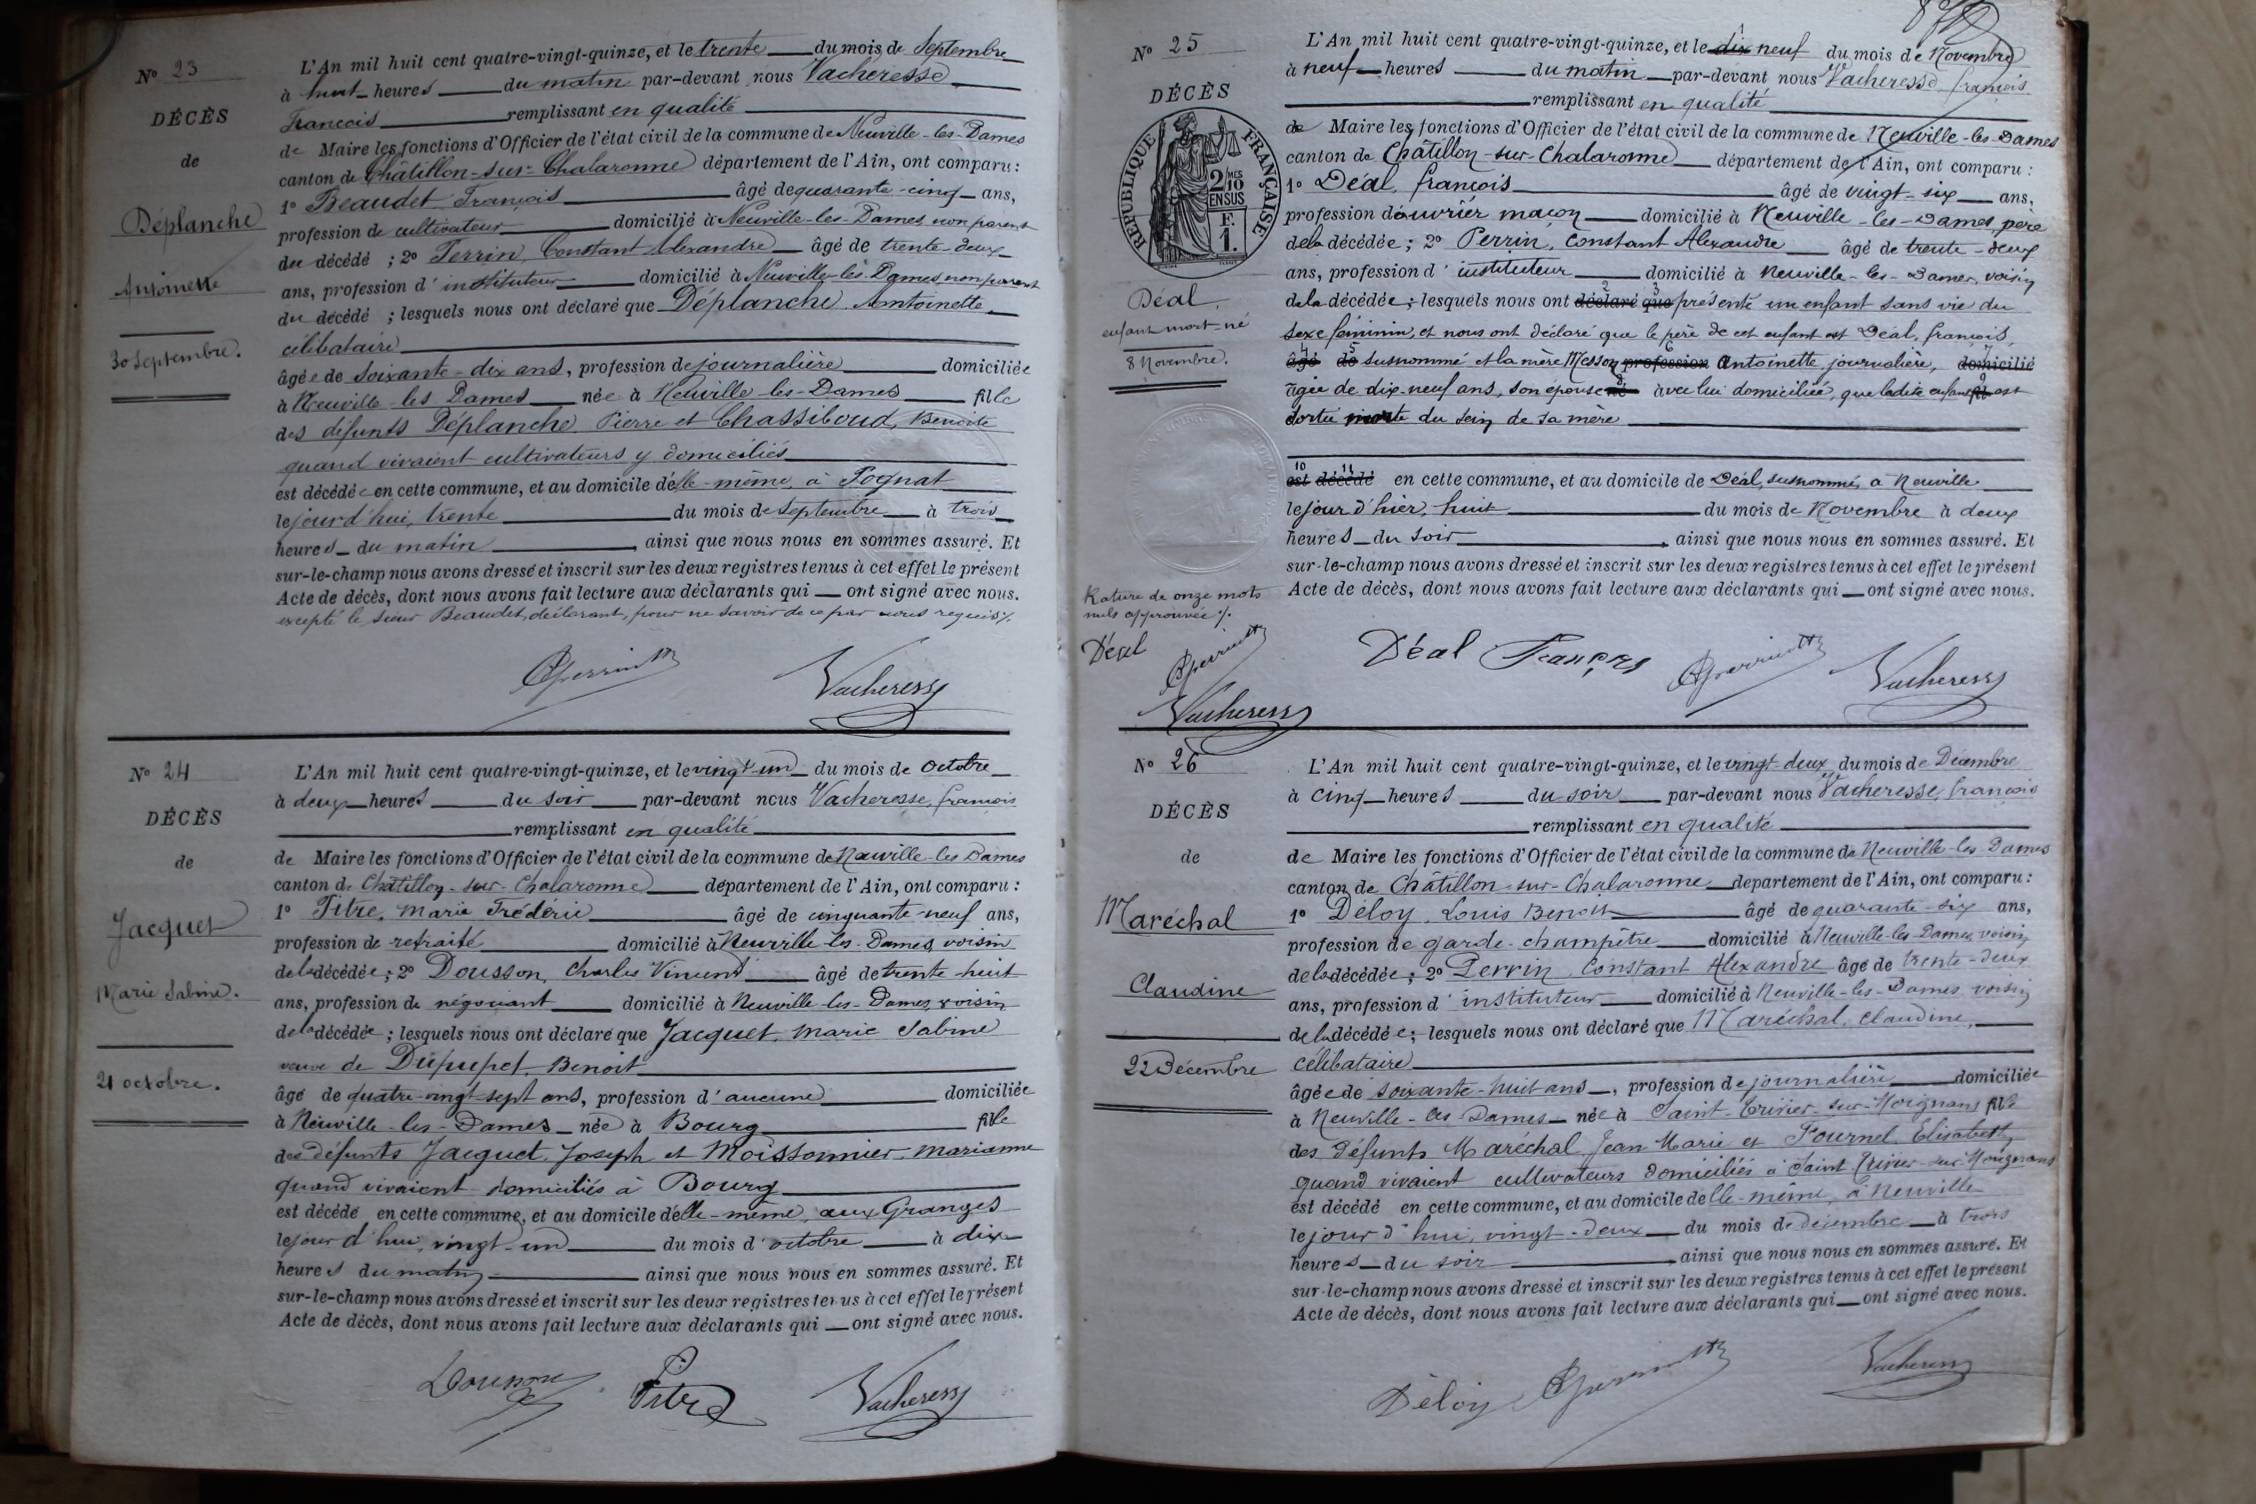 Nº 23
DÉCÈS
de
Déplanche
Antoinette
30 Septembre.
L'An mil huit cent quatre-vingt-quinze, et le trente du mois de Septembre
à huit heures du matin par-devant nous Vacheresse
François remplissant en qualité
de Maire les fonctions d'Officier de l'état civil de la commune de Neuville-les-Dames
canton de Châtillon-sur-Chalaronne département de l'Ain, ont comparu :
1º Beaudet François âgé de quarante-cinq ans,
profession de cultivateur domicilié à Neuville-les-Dames, non parent
du décédé ; 2º Perrin, Constant Alexandre âgé de trente-deux
ans, profession d'instituteur domicilié à Neuville-les-Dames, non parent
du décédé ; lesquels nous ont déclaré que Déplanche Antoinette
célibataire
âgée de soixante-dix ans, profession de journalière domiciliée
à Neuville les Dames née à Neuville-les-Dames fille
des défunts Déplanche Pierre et Chassiboud, Benoite
quand vivaient cultivateurs y domiciliés
est décédée en cette commune, et au domicile d'elle-même, à Pognat
le jour d'hui, trente du mois de septembre à trois
heures du matin, ainsi que nous nous en sommes assuré. Et
sur-le-champ nous avons dressé et inscrit sur les deux registres tenus à cet effet le présent
Acte de décès, dont nous avons fait lecture aux déclarants qui ont signé avec nous.
excepté le sieur Beaudet, déclarant, pour ne savoir de ce par nous requis ./.
CPerrin Vacheresse
Nº 24
DÉCÈS
de
Jacquet
Marie Sabine.
21 octobre.
L'An mil huit cent quatre-vingt-quinze, et le vingt-un du mois de octobre
à deux heures du soir par-devant nous Vacheresse, françois
remplissant en qualité
de Maire les fonctions d'Officier de l'état civil de la commune de Neuville-les-Dames
canton de Châtillon-sur-Chalaronne département de l'Ain, ont comparu :
1º Pitre, Marie Frédéric âgé de cinquante-neuf ans,
profession de retraité domicilié à Neuville-les-Dames, voisin
de la décédée ; 2º Dousson, Charles Vincent âgé de trente-huit
ans, profession de négociant domicilié à Neuville-les-Dames, voisin
de la décédée ; lesquels nous ont déclaré que Jacquet, Marie Sabine
veuve de Dupupet, Benoit
âgé de quatre-vingt-sept ans, profession d'aucune domiciliée
à Neuville-les-Dames née à Bourg fille
des défunts Jacquet, Joseph et Moissonnier, Marianne
quand vivaient domiciliés à Bourg
est décédé en cette commune, et au domicile d'elle-même, aux Granges
le jour d'hui, vingt-un du mois d'octobre à dix
heures du matin ainsi que nous nous en sommes assuré. Et
sur-le-champ nous avons dressé et inscrit sur les deux registres tenus à cet effet le présent
Acte de décès, dont nous avons fait lecture aux déclarants qui ont signé avec nous.
Dousson Pitre Vacheresse
Nº 25
DÉCÈS
RÉPUBLIQUE FRANÇAISE
2/10 EN SUS
F. 1.
Déal
enfant mort-né
8 Novembre.
Rature de onze mots
nuls approuvée ./.
Déal CPerrin
Vacheresse
L'An mil huit cent quatre-vingt-quinze, et le dix neuf du mois de Novembre
à neuf heures du matin par-devant nous Vacheresse françois
remplissant en qualité
de Maire les fonctions d'Officier de l'état civil de la commune de Neuville-les-Dames
canton de Châtillon-sur-Chalaronne département de l'Ain, ont comparu :
1º Déal, françois âgé de vingt-six ans,
profession d'ouvrier maçon domicilié à Neuville-les-Dames, père
de la décédée ; 2º Perrin, Constant Alexandre âgé de trente-deux
ans, profession d'instituteur domicilié à Neuville-les-Dames, voisin
de la décédée ; lesquels nous ont déclaré que présenté un enfant sans vie du
sexe féminin, et nous ont déclaré que le père de cet enfant est Déal, françois,
âgé de susnommé et la mère Messon profession Antoinette, journalière, domicilié
âgée de dix-neuf ans, son épouse né avec lui domiciliée, que ladite enfant fil est
sortie morte du sein de sa mère
est décédé en cette commune, et au domicile de Déal, susnommé, à Neuville
le jour d'hier, huit du mois de Novembre à deux
heures du soir, ainsi que nous nous en sommes assuré. Et
sur-le-champ nous avons dressé et inscrit sur les deux registres tenus à cet effet le présent
Acte de décès, dont nous avons fait lecture aux déclarants qui ont signé avec nous.
Déal François CPerrin Vacheresse
Nº 26
DÉCÈS
de
Maréchal
Claudine
22 Décembre
L'An mil huit cent quatre-vingt-quinze, et le vingt-deux du mois de Décembre
à cinq heures du soir par-devant nous Vacheresse, françois
remplissant en qualité
de Maire les fonctions d'Officier de l'état civil de la commune de Neuville-les-Dames
canton de Châtillon-sur-Chalaronne département de l'Ain, ont comparu :
1º Déloy, Louis Benoit âgé de quarante-six ans,
profession de garde-champêtre domicilié à Neuville-les-Dames, voisin
de la décédée ; 2º Perrin, Constant Alexandre âgé de trente-deux
ans, profession d'instituteur domicilié à Neuville-les-Dames voisin
de la décédée ; lesquels nous ont déclaré que Maréchal, Claudine,
célibataire
âgée de soixante-huit ans, profession de journalière domiciliée
à Neuville-les-Dames née à Saint-Trivier-sur-Moignans fille
des défunts Maréchal Jean-Marie et Fournel Elisabeth
quand vivaient cultivateurs domiciliés à Saint Trivier-sur-Moignans
est décédé en cette commune, et au domicile d'elle-même, à Neuville
le jour d'hui, vingt-deux du mois de décembre à trois
heures du soir, ainsi que nous nous en sommes assuré. Et
sur-le-champ nous avons dressé et inscrit sur les deux registres tenus à cet effet le présent
Acte de décès, dont nous avons fait lecture aux déclarants qui ont signé avec nous.
Déloy CPerrin Vacheresse